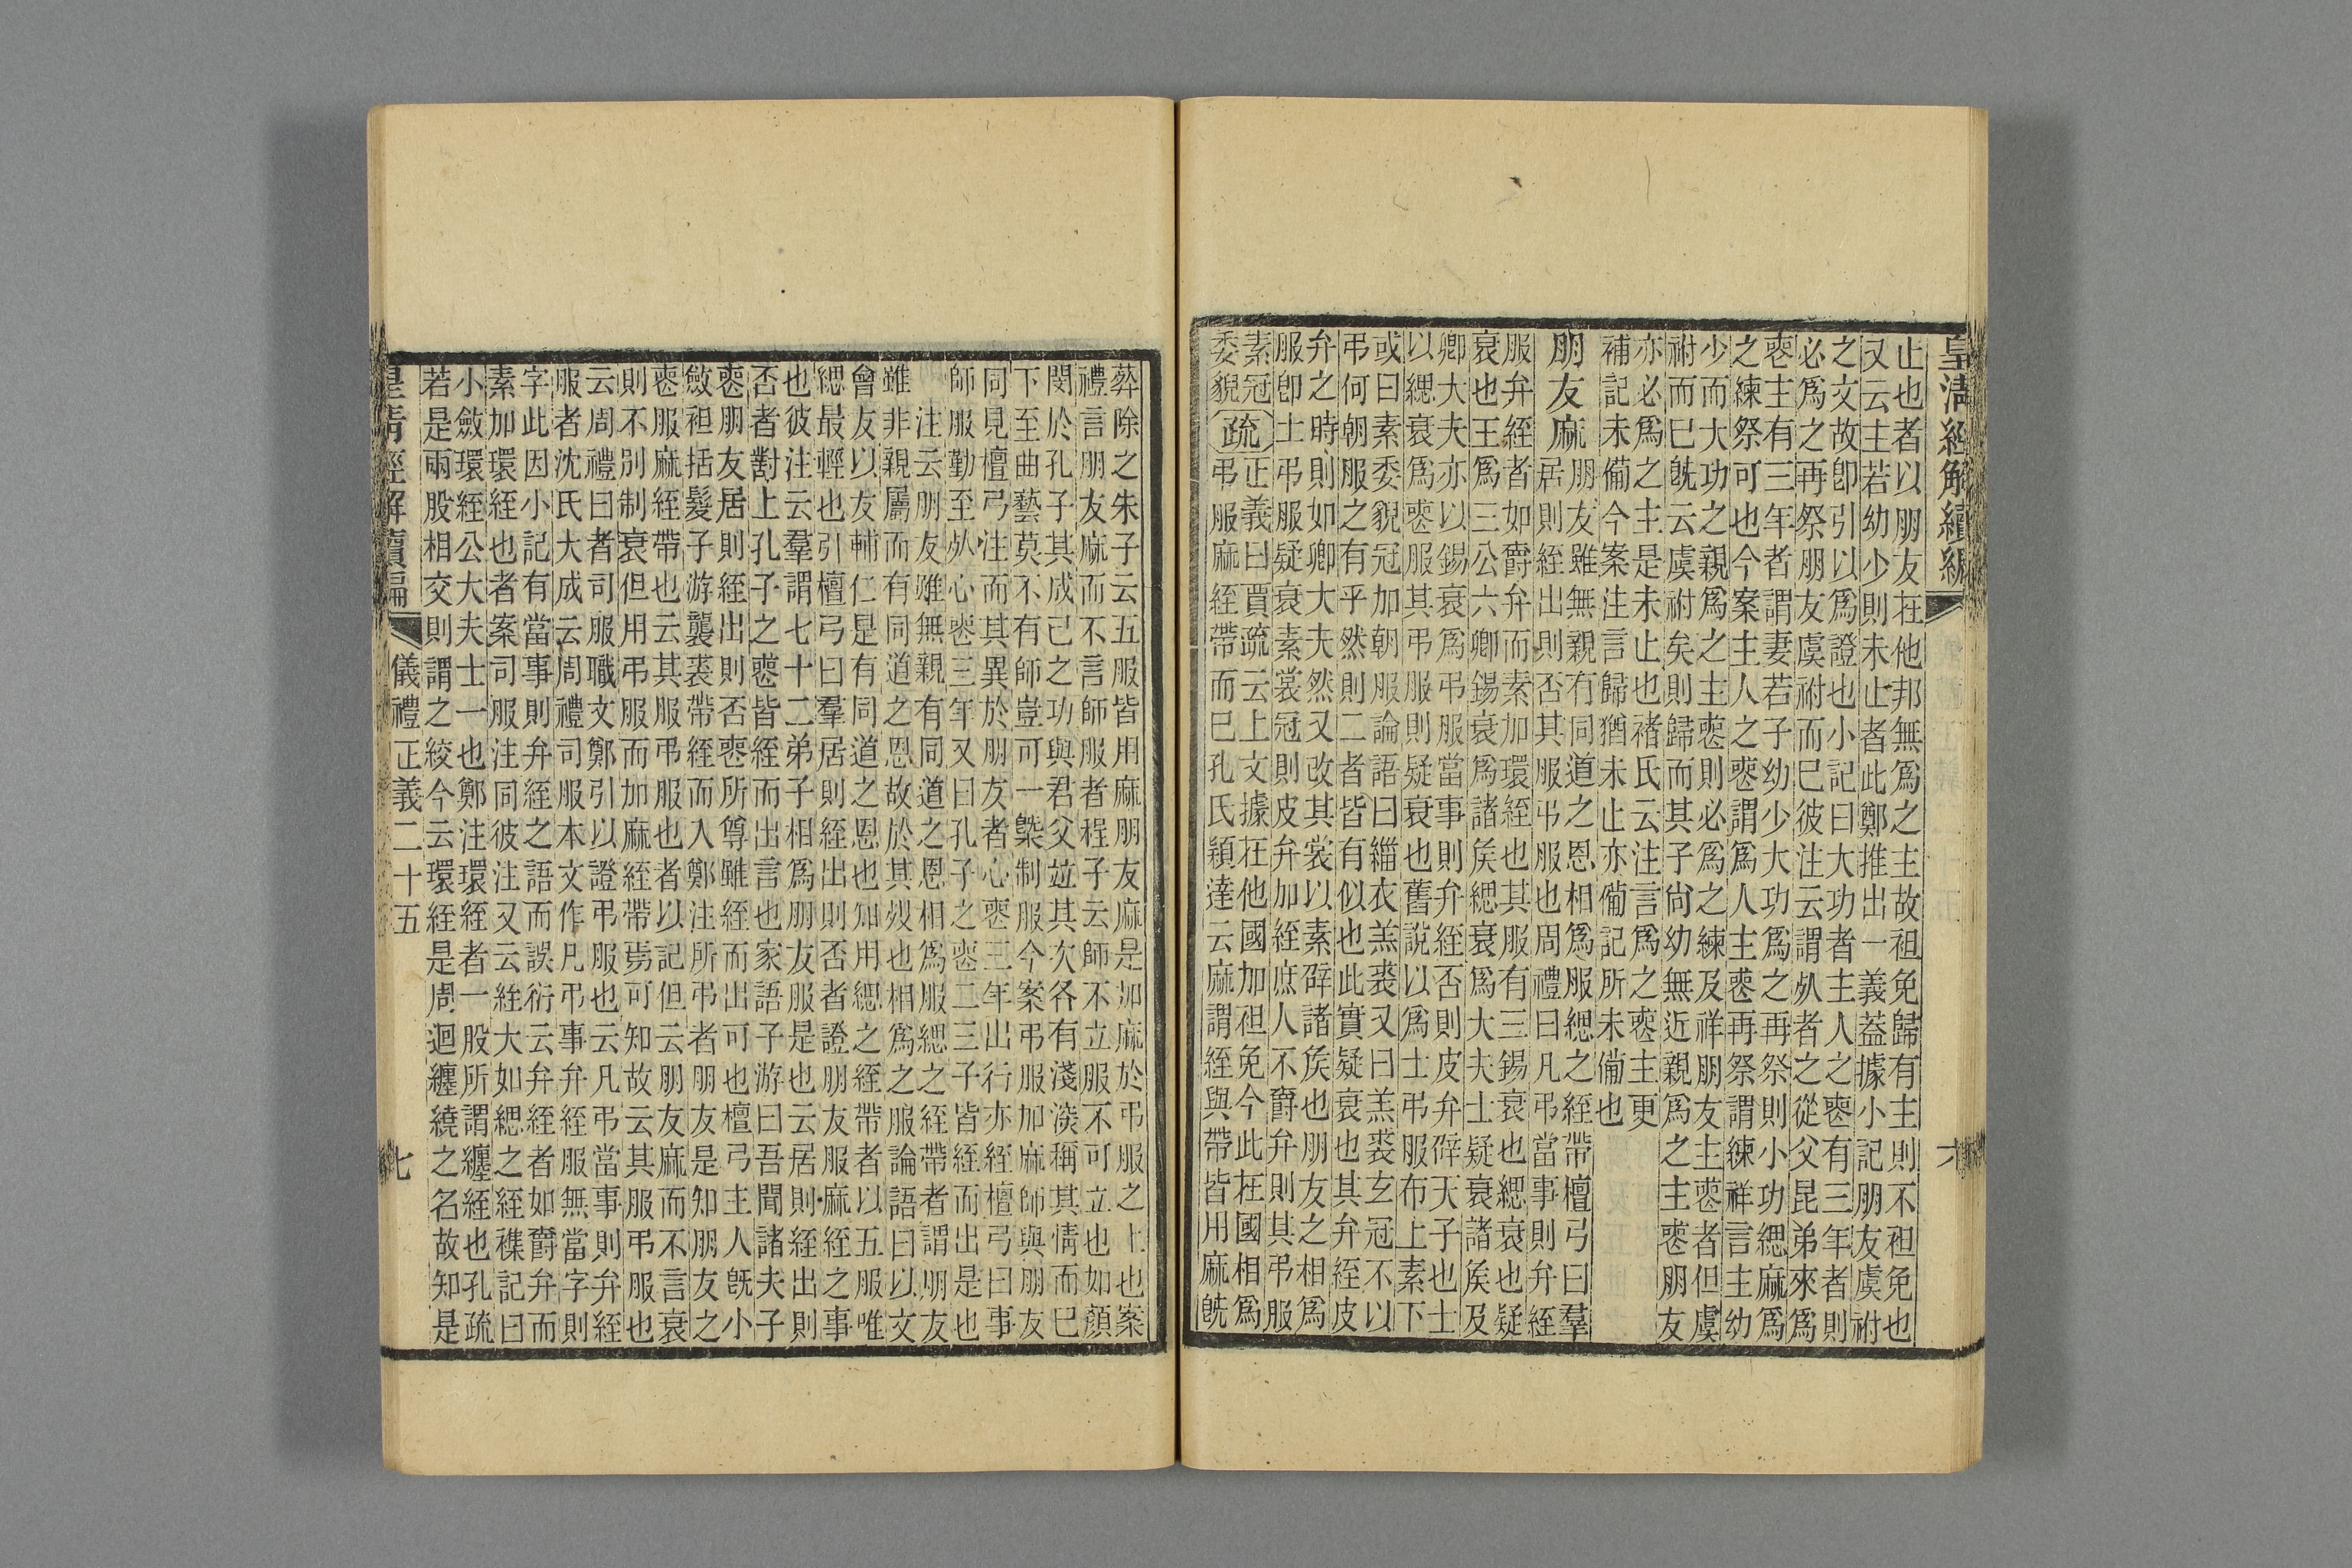 皇清經解續編
六
止也者以朋友在他邦無爲之主故袒免歸有主則不袒免也
又云主若幼少則未止者此鄭推出一義蓋據小記朋友虞祔
之文故卽引以爲證也小記曰大功者主人之喪有三年者則
必爲之再祭朋友虞祔而已彼注云謂死者之從父昆弟來爲
喪主有三年者謂妻若子幼少大功爲之再祭則小功緦麻爲
之練祭可也今案主人之喪謂爲人主喪再祭謂練祥言主幼
少而大功之親爲之主喪則必爲之練及祥朋友主喪者但虞
祔而已旣云虞祔矣則歸而其子尚幼無近親爲之主喪朋友
亦必爲之主是未止也褚氏云注言爲之喪主更
補記未備今案注言歸猶未止亦備記所未備也
朋友麻
朋友雖無親有同道之恩相爲服緦之絰帶檀弓曰羣
居則絰出則否其服弔服也周禮曰凡弔當事則弁絰
服弁絰者如爵弁而素加環絰也其服有三錫衰也緦衰也疑
衰也王爲三公六卿錫衰爲諸矦緦衰爲大夫士疑衰諸矦及
卿大夫亦以錫衰爲弔服當事則弁絰否則皮弁辟天子也士
以緦衰爲喪服其弔服則疑衰也舊說以爲士弔服布上素下
或曰素委貌冠加朝服論語曰緇衣羔裘又曰羔裘玄冠不以
弔何朝服之有乎然則二者皆有似也此實疑衰也其弁絰皮
弁之時則如卿大夫然又改其裳以素辟諸矦也朋友之相爲
服卽士弔服疑衰素裳冠則皮弁加絰庶人不爵弁則其弔服
素冠
委貌
疏
正義曰賈疏云上文據在他國加袒免今此在國相爲
弔服麻絰帶而已孔氏穎達云麻謂絰與帶皆用麻旣
葬除之朱子云五服皆用麻朋友麻是加麻於弔服之上也案
禮言朋友麻而不言師服者程子云師不立服不可立也如顏
閔於孔子其成己之功與君父竝其次各有淺深稱其情而已
下至曲藝莫不有師豈可一槩制服今案弔服加麻師與朋友
同見檀弓注而其異於朋友者心喪三年出行亦絰檀弓曰事
師服勤至死心喪三年又曰孔子之喪二三子皆絰而出是也
注云朋友雖無親有同道之恩相爲服緦之絰帶者謂朋友
雖非親屬而有同道之恩故於其歿也相爲之服論語曰以文
會友以友輔仁是有同道之恩也知用緦之絰帶者以五服唯
緦最輕也引檀弓曰羣居則絰出則否者證朋友服麻絰之事
也彼注云羣謂七十二弟子相爲朋友服是也云居則絰出則
否者對上孔子之喪皆絰而出言也家語子游曰吾聞諸夫子
喪朋友居則絰出則否喪所尊雖絰而出可也檀弓主人旣小
斂袒括髮子游襲裘帶絰而入鄭注所弔者朋友是知朋友之
喪服麻絰帶也云其服弔服也者以記但云朋友麻而不言衰
則不別制衰但用弔服而加麻絰帶焉可知故云其服弔服也
云周禮曰者司服職文鄭引以證弔服也云凡弔當事則弁絰
服者沈氏大成云周禮司服本文作凡弔事弁絰服無當字則
字此因小記有當事則弁絰之語而誤衍云弁絰者如爵弁而
素加環絰也者案司服注同彼注又云絰大如緦之絰襍記曰
小斂環絰公大夫士一也鄭注環絰者一股所謂纏絰也孔疏
若是兩股相交則謂之絞今云環絰是周迴纏繞之名故知是
皇清經解續編
儀禮正義二十五
七